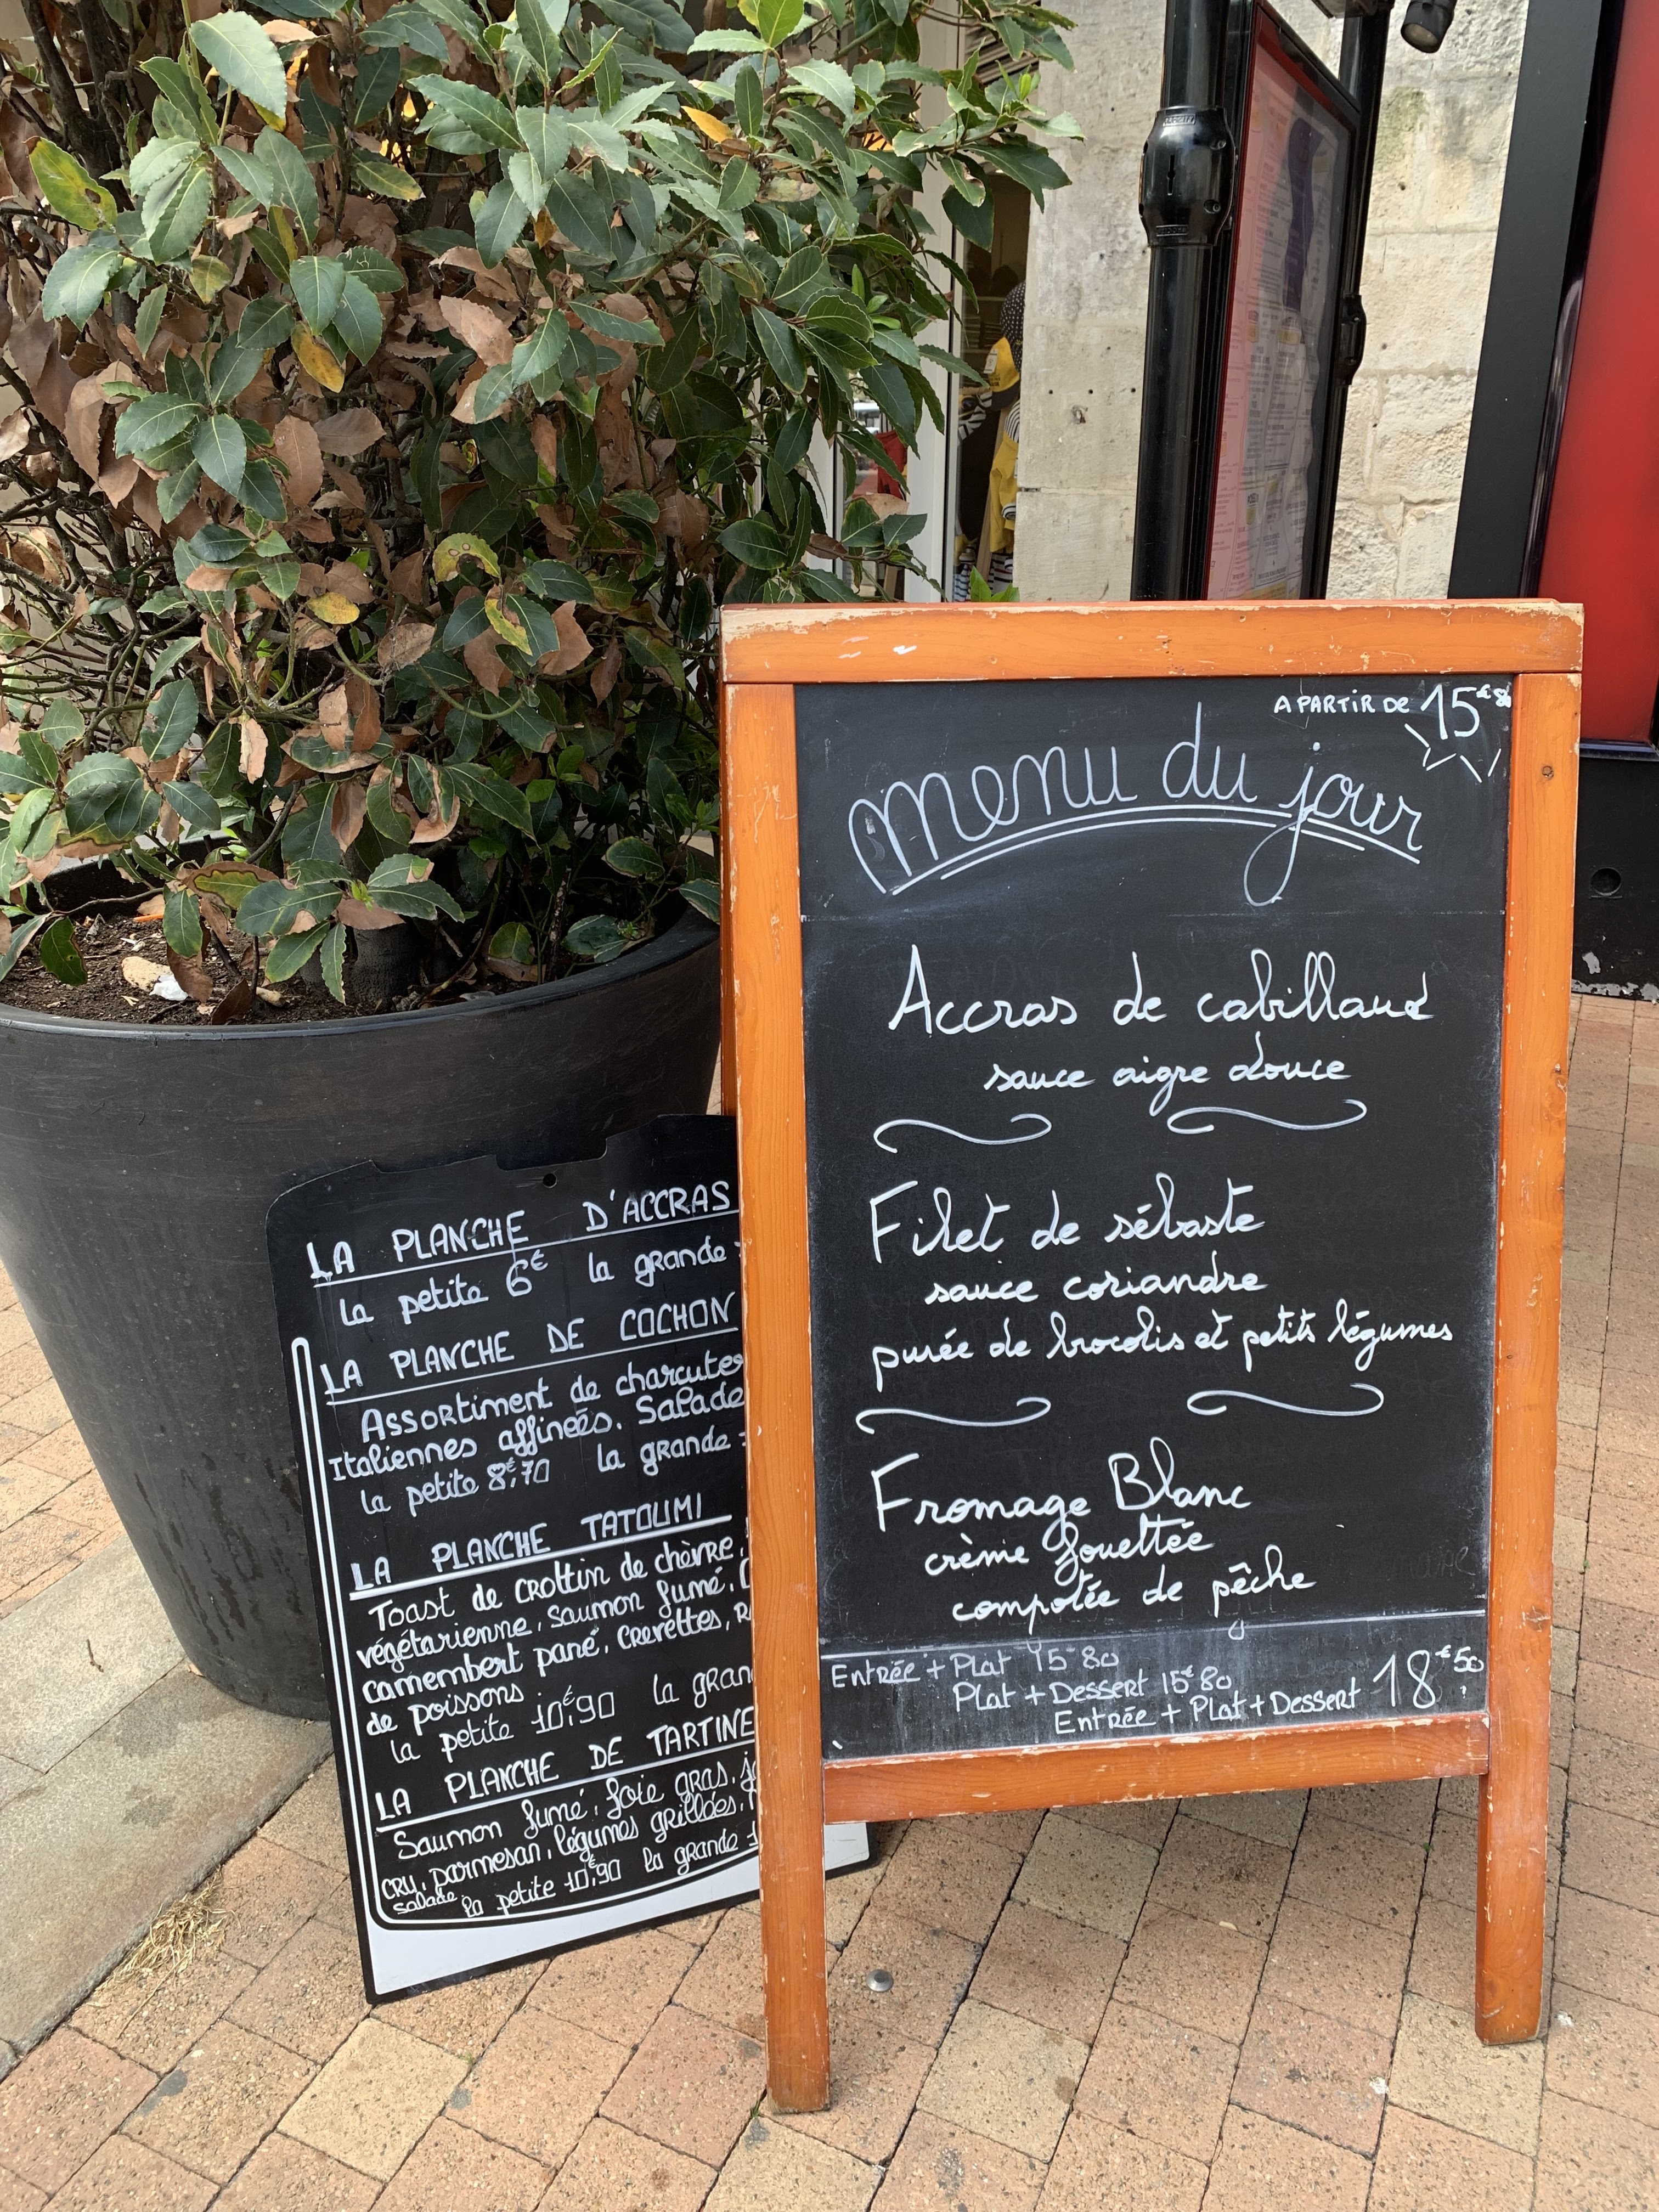 A PARTIR DE 15€80
menu du jour
Accras de cabillaud
sauce aigre douce
Filet de sébaste
sauce coriandre
purée de brocolis et petits légumes
Fromage Blanc
crème fouettée
compotée de pêche
Entrée + Plat 15€80
Plat + Dessert 15€80
Entrée + Plat + Dessert 18€50
LA PLANCHE D'ACCRAS
la petite 6€ la grande
LA PLANCHE DE COCHON
Assortiment de
Italiennes affinées. Salade
la petite 8€,70 la grande
LA PLANCHE TATOUMI
Toast de crottin de chèvre,
végétarienne, saumon fumé,
camembert pané, crevettes,
de poissons
la petite 10€,90 la
LA PLANCHE DE
Saumon fumé, foie gras,
cru, parmesan, légumes grillées,
salade la petite 10€,90 la grande